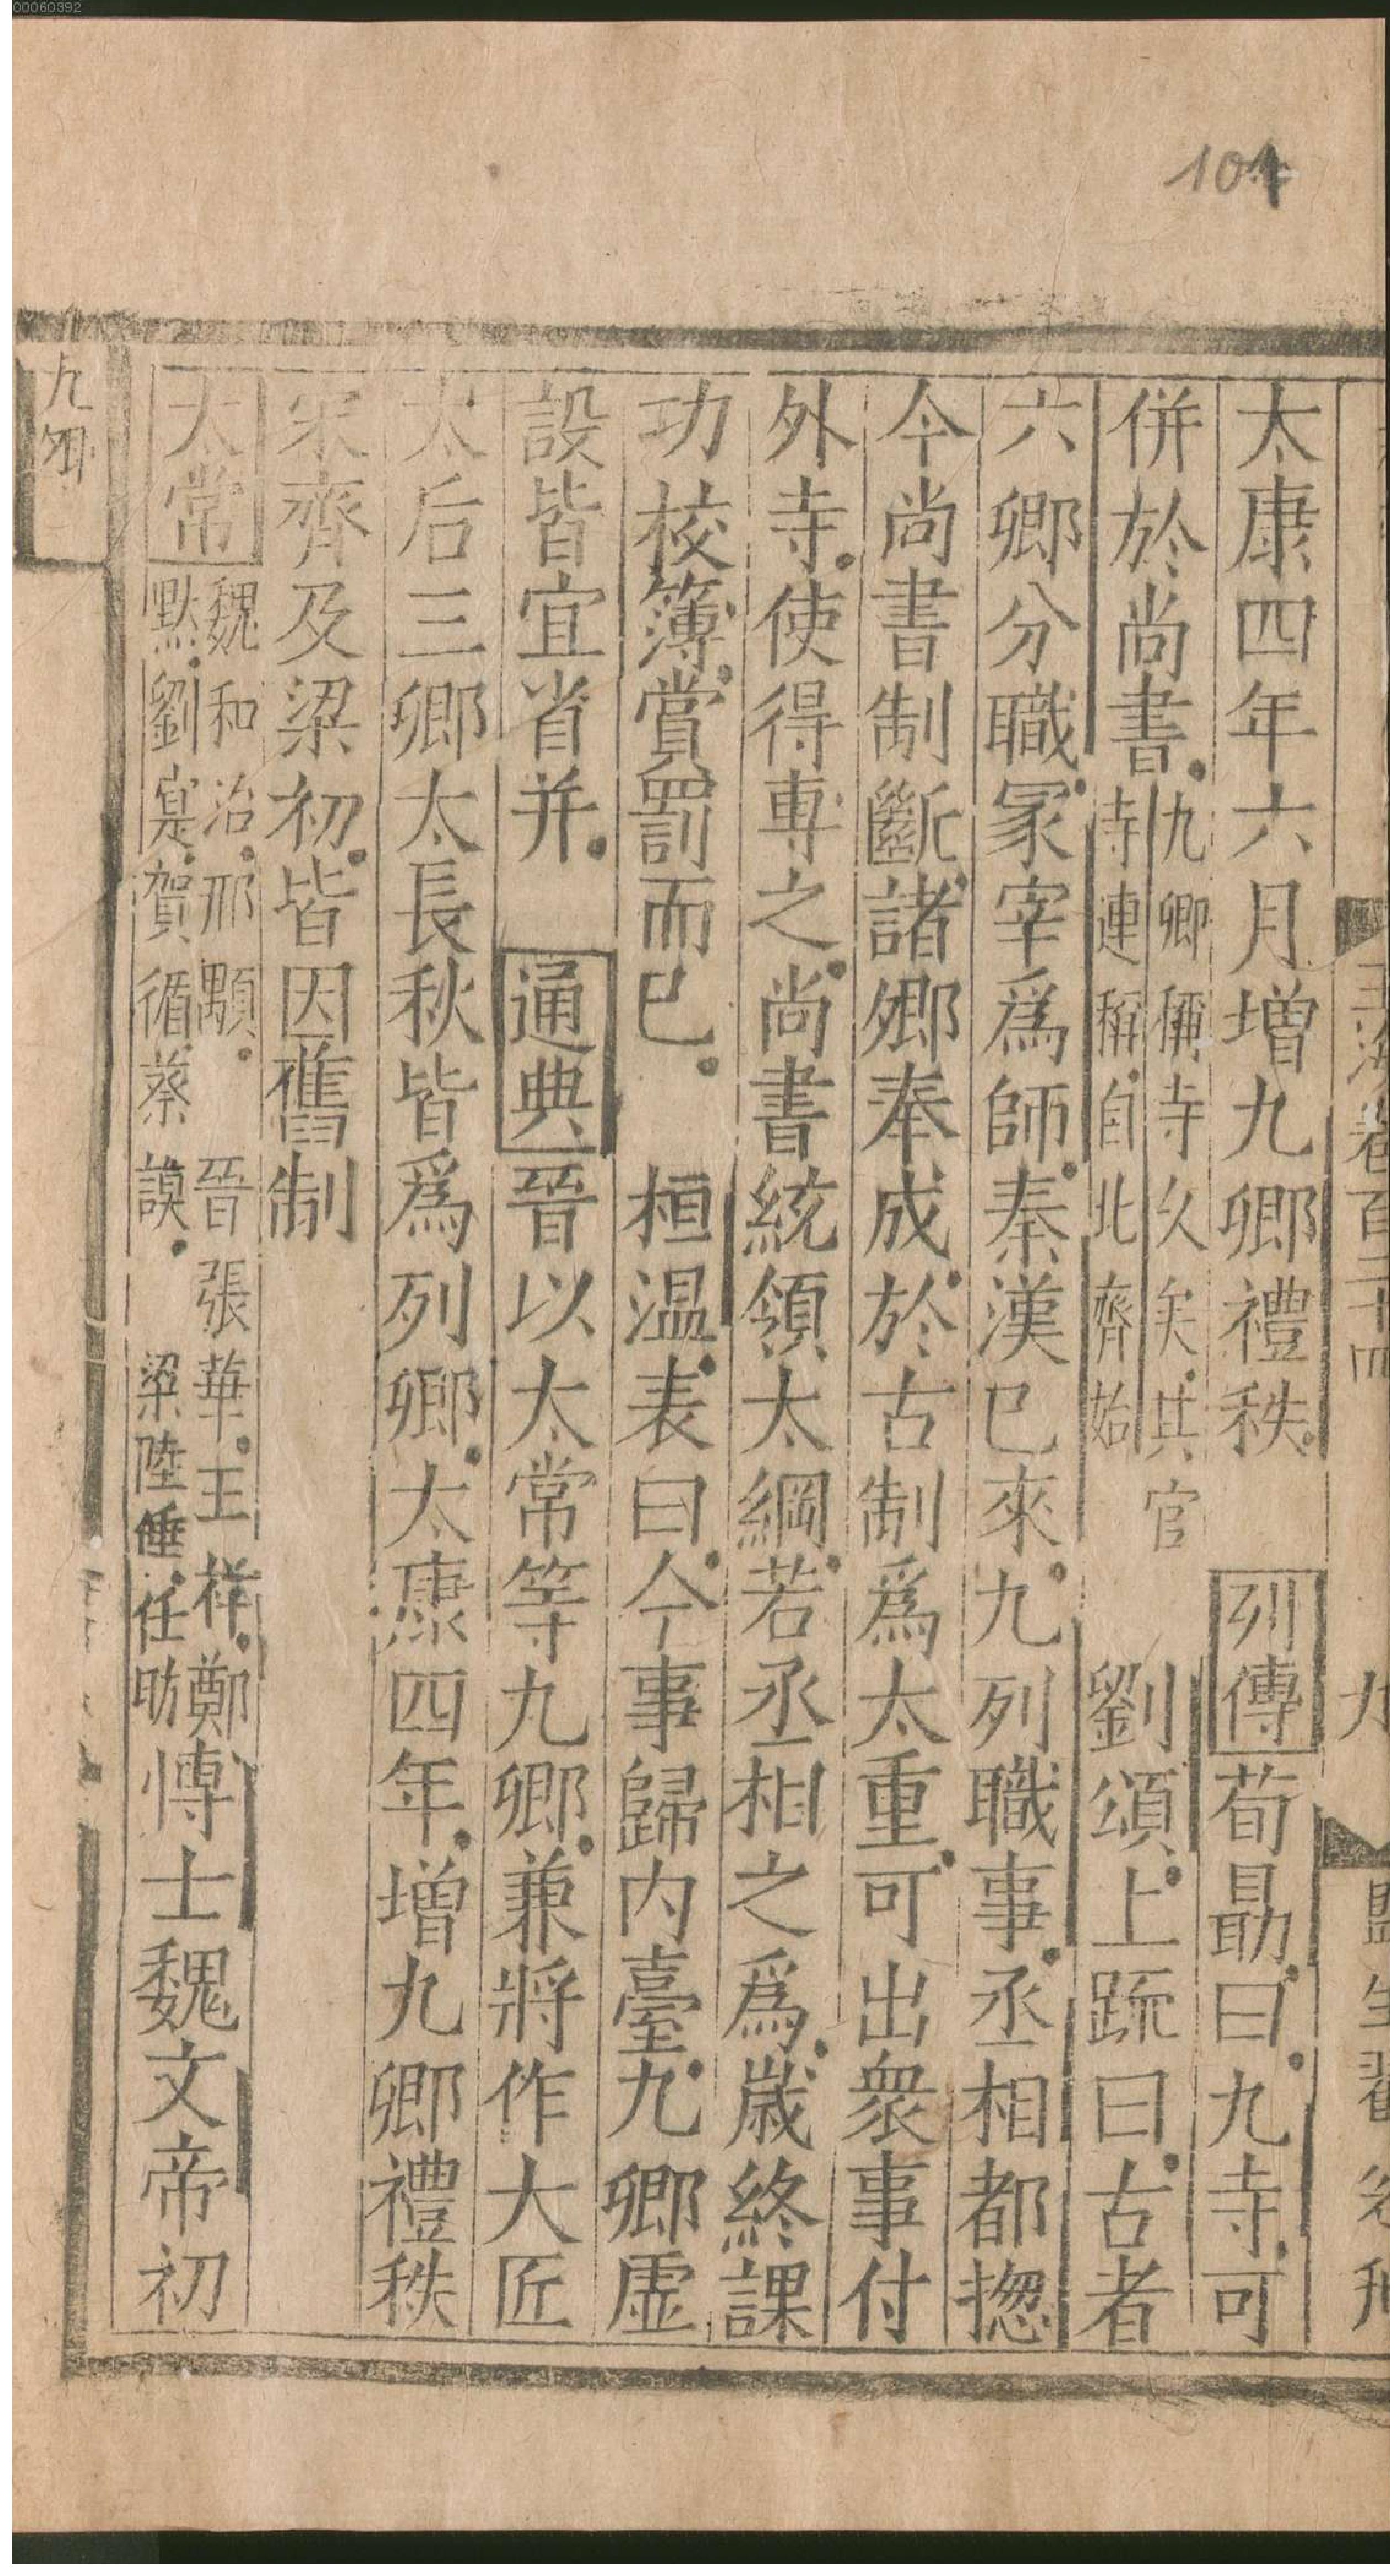 00060392
101
玉海卷百二十四
九
太康四年六月增九卿禮秩列傳荀勗曰九寺可
併於尚書九卿稱寺久矣其官寺連稱自北齊始劉頌上䟽曰古者
六卿分職冢宰爲師秦漢已來九列職事丞相都揔
今尚書制斷諸卿奉成於古制爲太重可出衆事付
外寺使得專之尚書統領大綱若丞相之爲歳終課
功校簿賞罰而已桓溫表曰今事歸内臺九卿虛
設皆宜省并通典晉以太常等九卿兼將作大匠
太后三卿太長秋皆爲列卿太康四年增九卿禮秩
宋齊及梁初皆因舊制
太常魏和洽邢顒晉張華王祥鄭默劉寔賀循蔡謨梁陸倕任昉博士魏文帝初
九卿